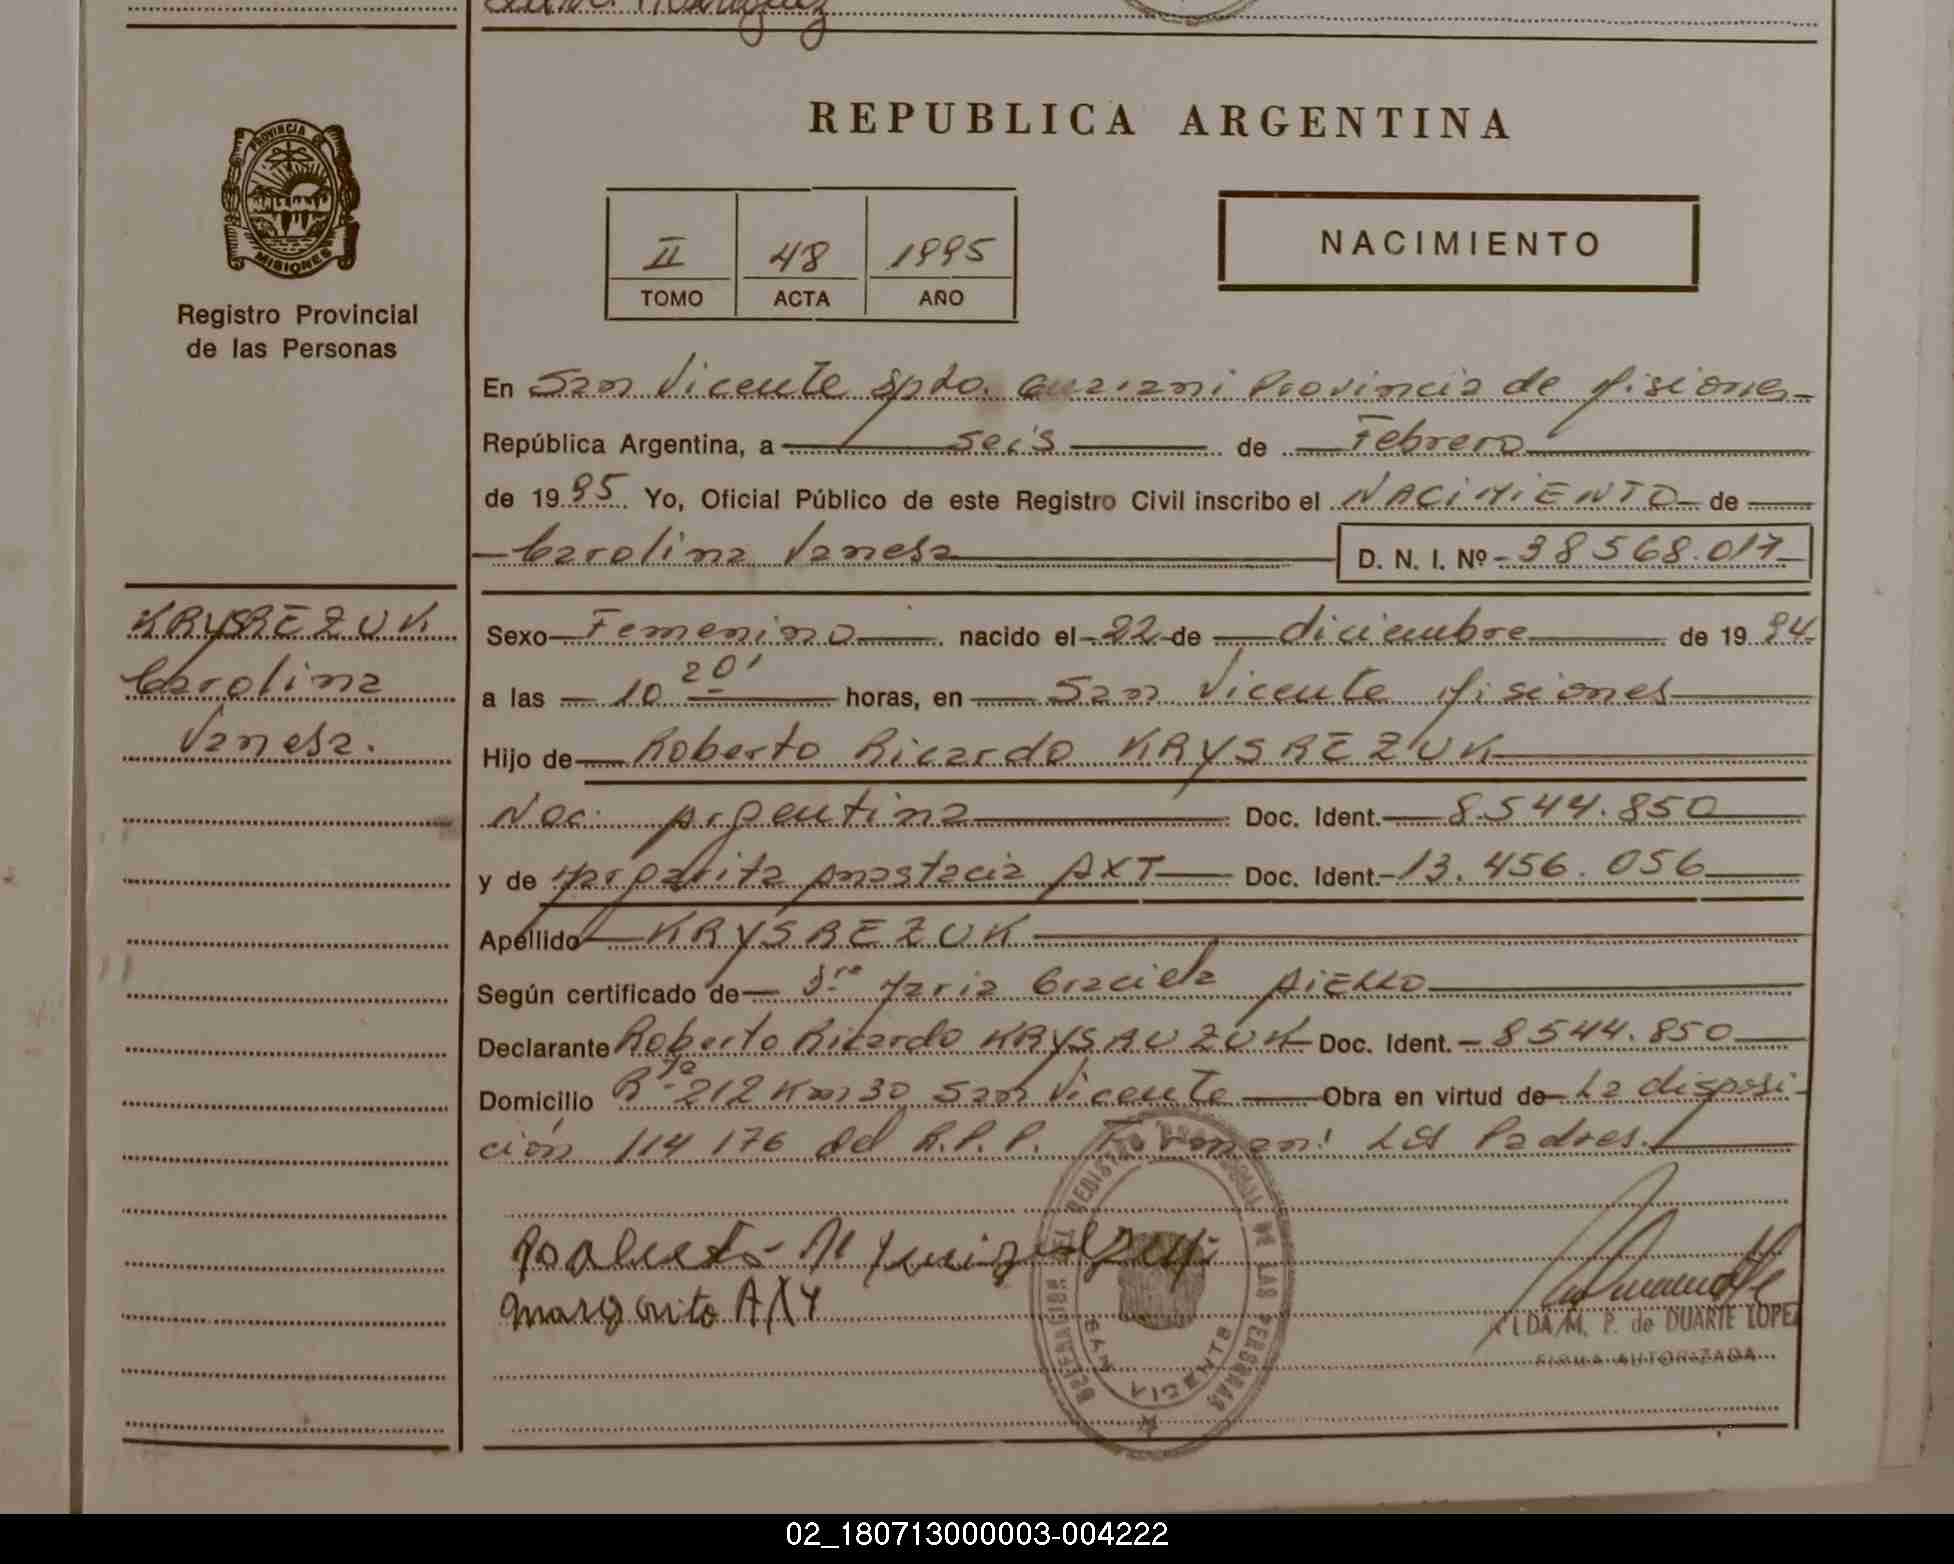 Rodriguez
REPUBLICA ARGENTINA
PROVINCIA DE
MISIONES
Registro Provincial
de las Personas
II 48 1995
TOMO ACTA AÑO
NACIMIENTO
En San Vicente Dpto. Guarani Provincia de Misiones
República Argentina, a seis de Febrero
de 1995 Yo, Oficial Público de este Registro Civil inscribo el NACIMIENTO de
Carolina Vanesa D. N. I. Nº 38568.017
KRYSREZUK
Carolina
Vanesa.
Sexo Femenino nacido el 22 de diciembre de 1994
a las 10 20' horas, en San Vicente Misiones
Hijo de Roberto Ricardo KRYSREZUK
Nac. Argentina Doc. Ident. 8.544.850
y de Margarita Anastacia AXT Doc. Ident. 13.456.056
Apellido KRYSREZUK
Según certificado de Dra Maria Graciela AiELLO
Declarante Roberto Ricardo KRYSAUZUK Doc. Ident. 8544.850
Domicilio Rta 212 Km 30 San Vicente Obra en virtud de La disposi-
ción 114 176 del R.P.P. Forman: Los Padres.
Roberto R
margarita AXT
DELEGACION DEL REGISTRO PROVINCIAL DE LAS PERSONAS
SAN VICENTE
M. P. de DUARTE LOPEZ
FIRMA AUTORIZADA
02_180713000003-004222